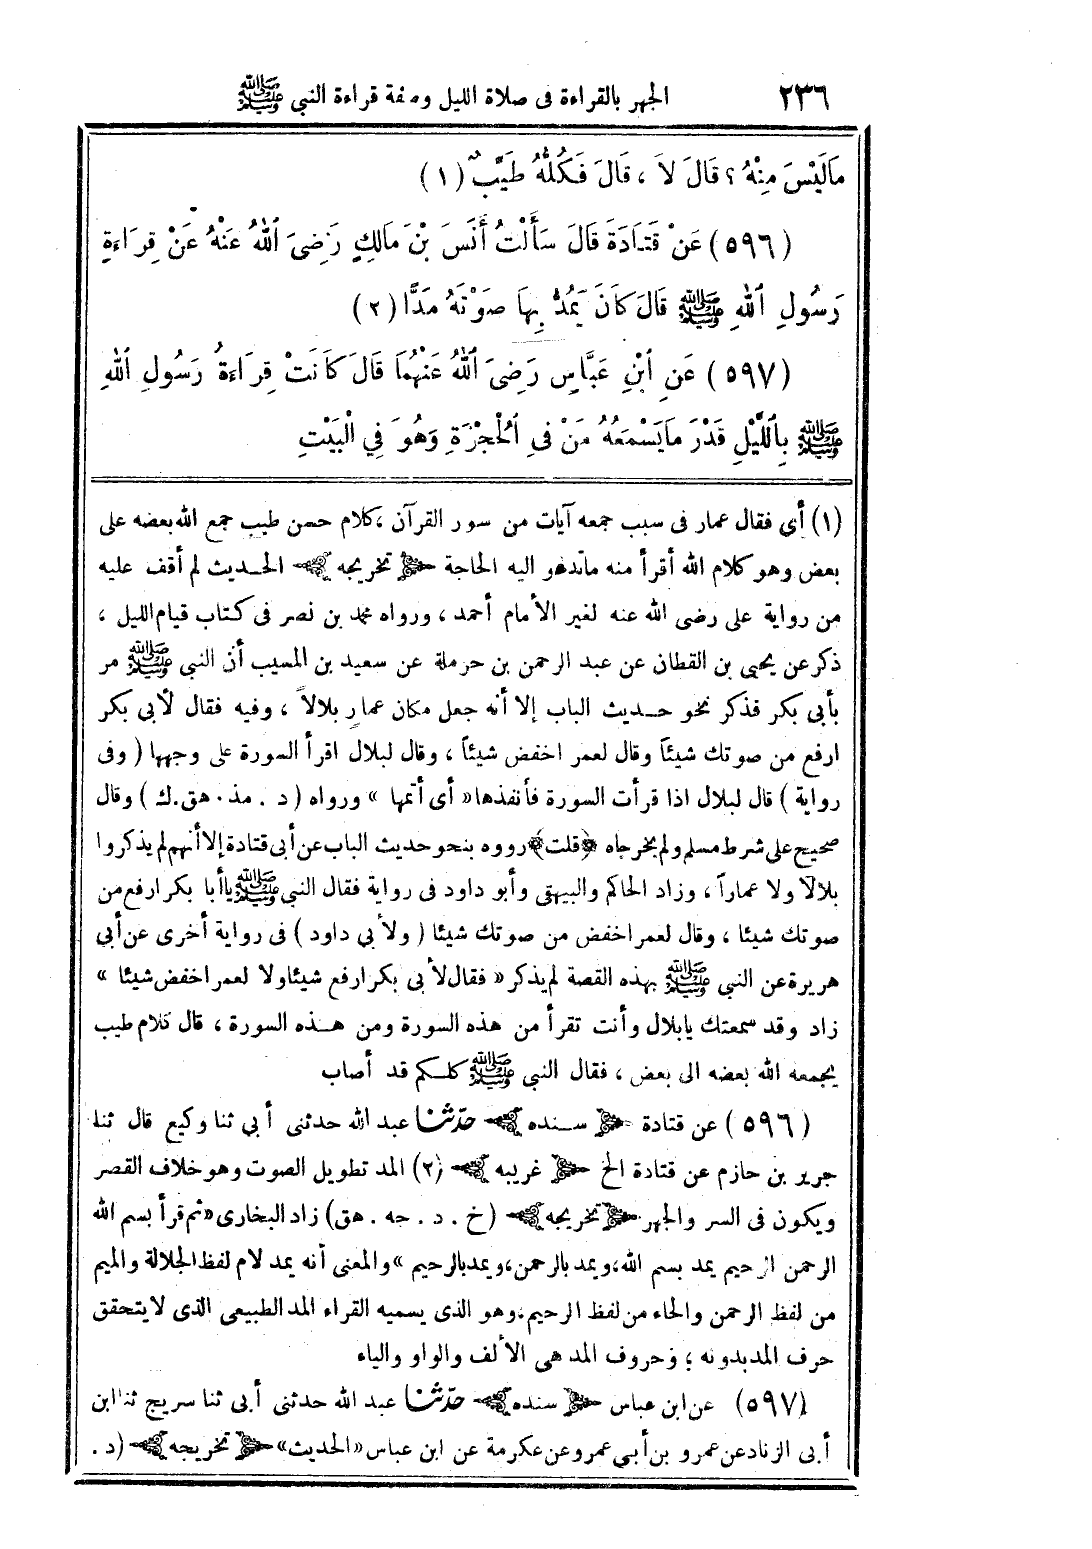 ٢٣٦ الجهر بالقراءة فى صلاة الليل وصفة قراءة النبي ﷺ
مَالَيْسَ مِنْهُ؟ قَالَ لاَ ، قَالَ فَكُلُّهُ طَيِّبٌ (١)
(٥٩٦) عَنْ قَتَادَةَ قَالَ سَأَلْتُ أَنَسَ بْنَ مَالِكٍ رَضِىَ اللهُ عَنْهُ عَنْ قِرَاءَةِ
رَسُولِ اللهِ ﷺ قَالَ كَانَ يَمُدُّ بِهَا صَوْتَهُ مَدًّا (٢)
(٥٩٧) عَنِ ابْنِ عَبَّاسٍ رَضِىَ اللهُ عَنْهُمَا قَالَ كَانَتْ قِرَاءَةُ رَسُولِ اللهِ
ﷺ بِاللَّيْلِ قَدْرَ مَايَسْمَعُهُ مَنْ فِى الْحُجْرَةِ وَهُوَ فِي الْبَيْتِ
(١) أي فقال عمار فى سبب جمعه آيات من سور القرآن ،كلام حسن طيب جمع الله بعضه على
بعض وهو كلام الله أقرأ منه ماتدهو اليه الحاجة ﴿ تخريجه ﴾ الحديث لم أقف عليه
من رواية على رضى الله عنه لغير الأمام أحمد ، ورواه محمد بن نصر فى كتاب قيام الليل ،
ذكر عن يحيى بن القطان عن عبد الرحمن بن حرملة عن سعيد بن المسيب أن النبي ﷺ مر
بأبي بكر فذكر نحو حديث الباب إلا أنه جعل مكان عمار بلالاً ، وفيه فقال لأبي بكر
ارفع من صوتك شيئاً وقال لعمر اخفض شيئاً ، وقال لبلال اقرأ السورة على وجهها ( وفى
رواية ) قال لبلال اذا قرأت السورة فأنفذها « أى أتمها » ورواه ( د . مذ . هق.ك ) وقال
صحيح على شرط مسلم ولم يخرجاه ﴿قلت﴾ رووه بنحو حديث الباب عن أبى قتادة إلا أنهم لم يذكروا
بلالا ولا عماراً ، وزاد الحاكم والبيهقى وأبو داود فى رواية فقال النبي ﷺ ياأبا بكر ارفع من
صوتك شيئا ، وقال لعمر اخفض من صوتك شيئا ( ولأبي داود ) فى رواية أخرى عن أبي
هريرة عن النبي ﷺ بهذه القصة لم يذكر « فقال لأبى بكر ارفع شيئا ولا لعمر اخفض شيئا »
زاد وقد سمعتك يابلال وأنت تقرأ من هذه السورة ومن هذه السورة ، قال كلام طيب
يجمعه الله بعضه الى بعض ، فقال النبي ﷺ كلكم قد أصاب
(٥٩٦) عن قتادة ﴿ سنده ﴾ حدّثنا عبد الله حدثنى أبي ثنا وكيع قال ثنا
جرير بن حازم عن قتادة الخ ﴿ غريبه ﴾ (٢) المد تطويل الصوت وهو خلاف القصر
ويكون فى السر والجهر ﴿تخريجه﴾ (خ . د . جه . هق) زاد البخارى «ثم قرأ بسم الله
الرحمن الرحيم يمد بسم الله، ويمد بالرحمن، ويمد بالرحيم »والمعنى أنه يمد لام لفظ الجلالة والميم
من لفظ الرحمن والحاء من لفظ الرحيم ، وهو الذى يسميه القراء المد الطبيعى الذى لا يتحقق
حرف المد بدونه ؛ وحروف المد هى الألف والواو والياء
(٥٩٧) عن ابن عباس ﴿ سنده ﴾ حدّثنا عبد الله حدثنى أبي ثنا سريج ثنا ابن
أبى الزناد عن عمرو بن أبي عمرو عن عكرمة عن ابن عباس «الحديث» ﴿ تخريجه ﴾ (د .